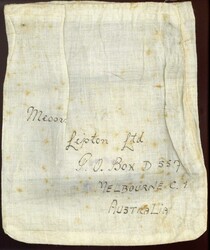 Messrs
Lipton Ltd
P.O. Box D 557
MELBOURNE C.1
AUSTRALIA